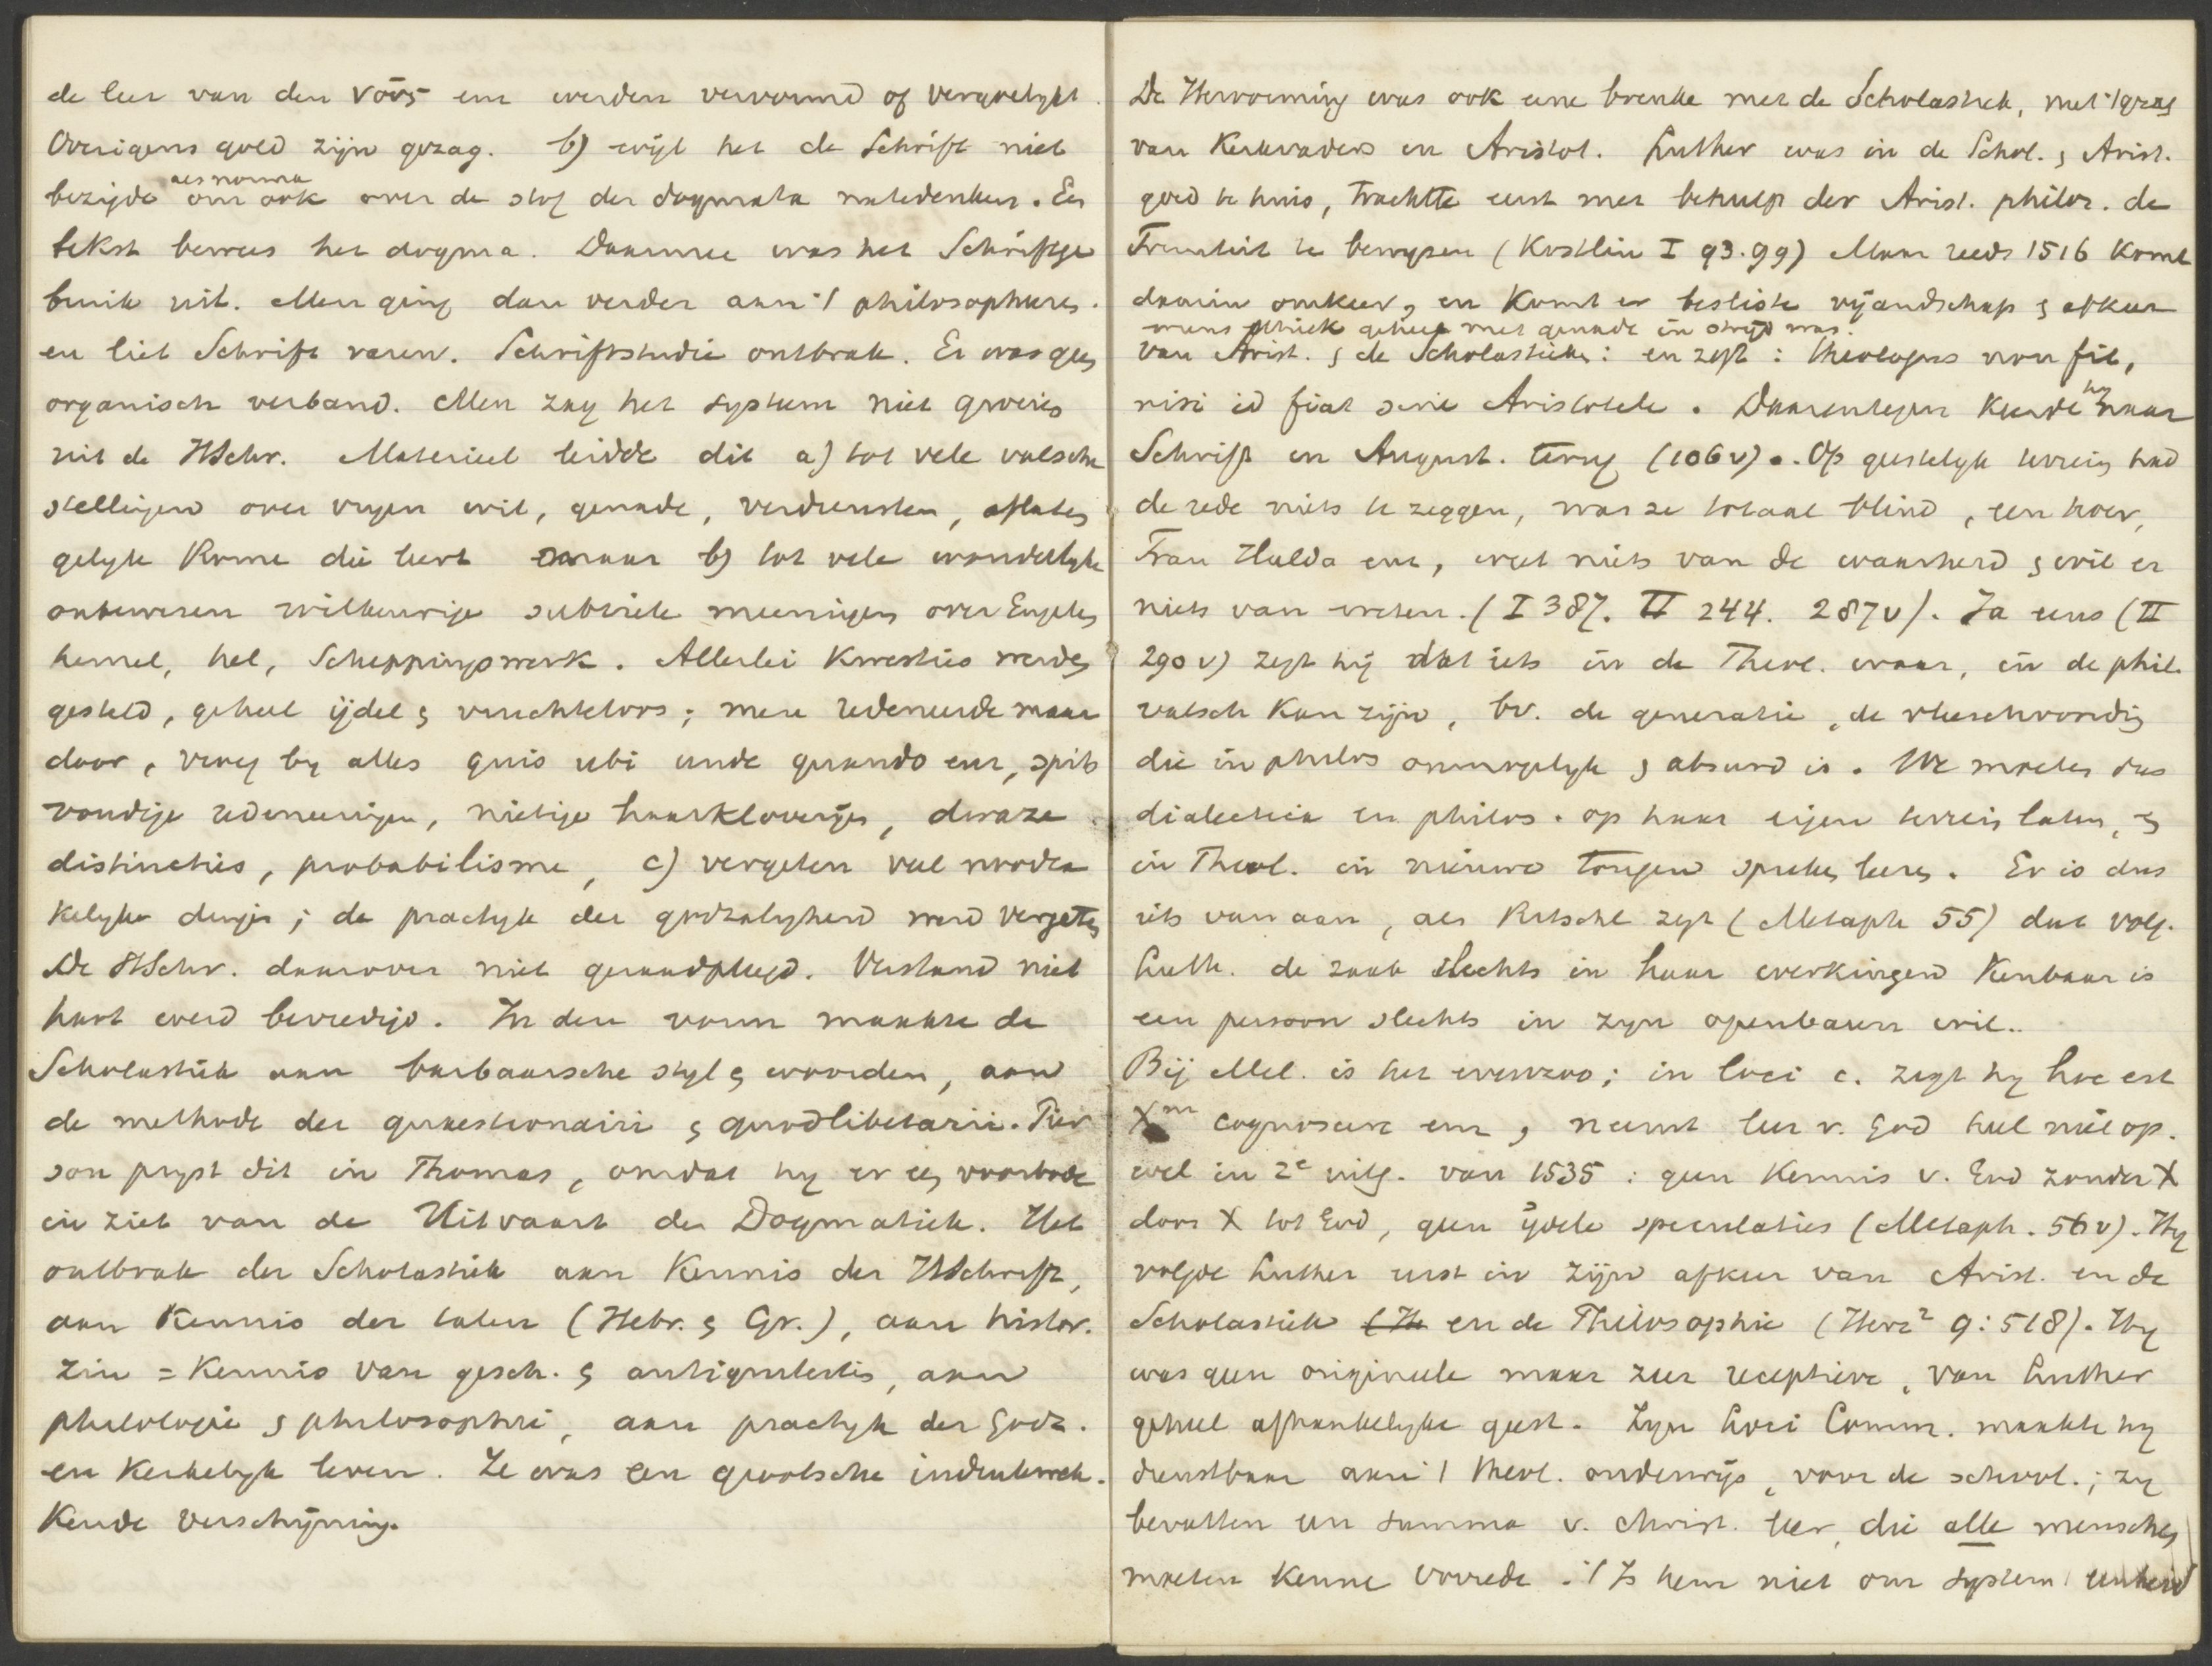 de leer van den νοῦς enz werden vervormd of vergeelykt.
Overigens gold zijn gezag. b) wijl het de Schrift niet
bezigde als norma om ook over de stof der dogmata natedenken. Een
tekst bewees het dogma. Daarmee was het Schriftge
bruik uit. Men ging dan verder aan 't philosopheren.
en liet Schrift varen. Schriftstudie ontbrak. Er was geen
organisch verband. Men zag het systeem niet groeien
uit de HSchr. Materieel leidde dit a) tot vele valsche
stellingen over vryen wil, genade, verdiensten, aflaten
gelyk Rome die leert maar b) tot vele wonderlyke
onbewezen willekeurige subtiele meeningen over Engelen
hemel, hel, Scheppingswerk. Allerlei kwesties werden
gesteld, geheel ijdel en vruchteloos; men redeneerde maar
door, vroeg by alles quis ubi unde quando enz, spits
vondige redeneeringen, nietige haarkloverijen, dwaze
distincties, probabilisme, c) vergeten veel noodza
kelyke dingen; de practyk der godzaligheid werd vergeten
De HSchr. daarover niet geraadpleegd. Verstand niet
hart werd bevredigd. In den vorm maakte de
Scholastiek aan barbaarsche styl en woorden, aan
de methode der quaestionairii en quodlibetarii. Pier
son pryst dit in Thomas, omdat hy er een voorbode
in ziet van de Uitvaart der Dogmatiek. Het
ontbrak der Scholastiek aan kennis der HSchrift,
aan kennis der talen (Hebr. en Gr.), aan histor.
zin = kennis van gesch. en antiquiteiten, aan
philologie en philosophie, aan practyk der Godz.
en kerkelyk leven. Ze was een grootsche indrukwek-
kende verschijning.
De Hervorming was ook eene breuke met de Scholastiek, met 't gezag
van Kerkvaders en Aristot. Luther was in de Schol. en Arist.
goed te huis, trachtte eerst met behulp der Arist. philos. de
Triniteit te bewyzen (Kostlin I 93.99) Maar reeds 1516 komt
daarin omkeer, en komt er besliste vijandschap en afkeer
wiens ethiek geheel met genade in strijd was.
van Arist. en de Scholastieken: en zegt: theologus non fit,
nisi id fiat sine Aristotele. Daarentegen keerde hy naar
Schrift en August. terug (106v). Op geestelyk terrein had
de rede niets te zeggen, was ze totaal blind, een hoer,
Frau Hulda enz, weet niets van de waarheid en wil er
niets van weten. (I 387. II 244. 287v). Ja eens (II
290v) zegt hij dat iets in de Theol. waar, in de phil.
valsch kan zijn, bv. de generatie, de vleeschwording
die in philos onmogelyk en absurd is. We moeten dus
dialectica en philos. op haar eigen terrein laten, en
in Theol. in nieuwe tongen spreken leeren. Er is dus
iets van aan, als Ritschl zegt (Metaph 55) dat volg.
Luth. de zaak slechts in haar werkingen kenbaar is
een persoon slechts in zyn openbaren wil..
Bij Mel. is het evenzoo; in loci c. zegt hy hoc est
Xm cognoscere enz, neemt leer v. God heel niet op.
wel in 2e uitg. van 1535: geen kennis v. God zonder X
door X tot God, geen ydele speculaties (Metaph. 56v). Hy
volgde Luther eerst in zijn afkeer van Arist. en de
Scholastiek en de Philosophie (Herz2 9:518). Hy
was geen origineele maar zeer receptieve, van Luther
geheel afhankelyke geest. Zyn Loci Comm. maakte hy
dienstbaar aan 't theol. onderwijs, voor de school.; zy
bevatten een summa v. christ. leer, die alle menschen
moeten kenne voorrede. 't Is hem niet om systeem, eenheid